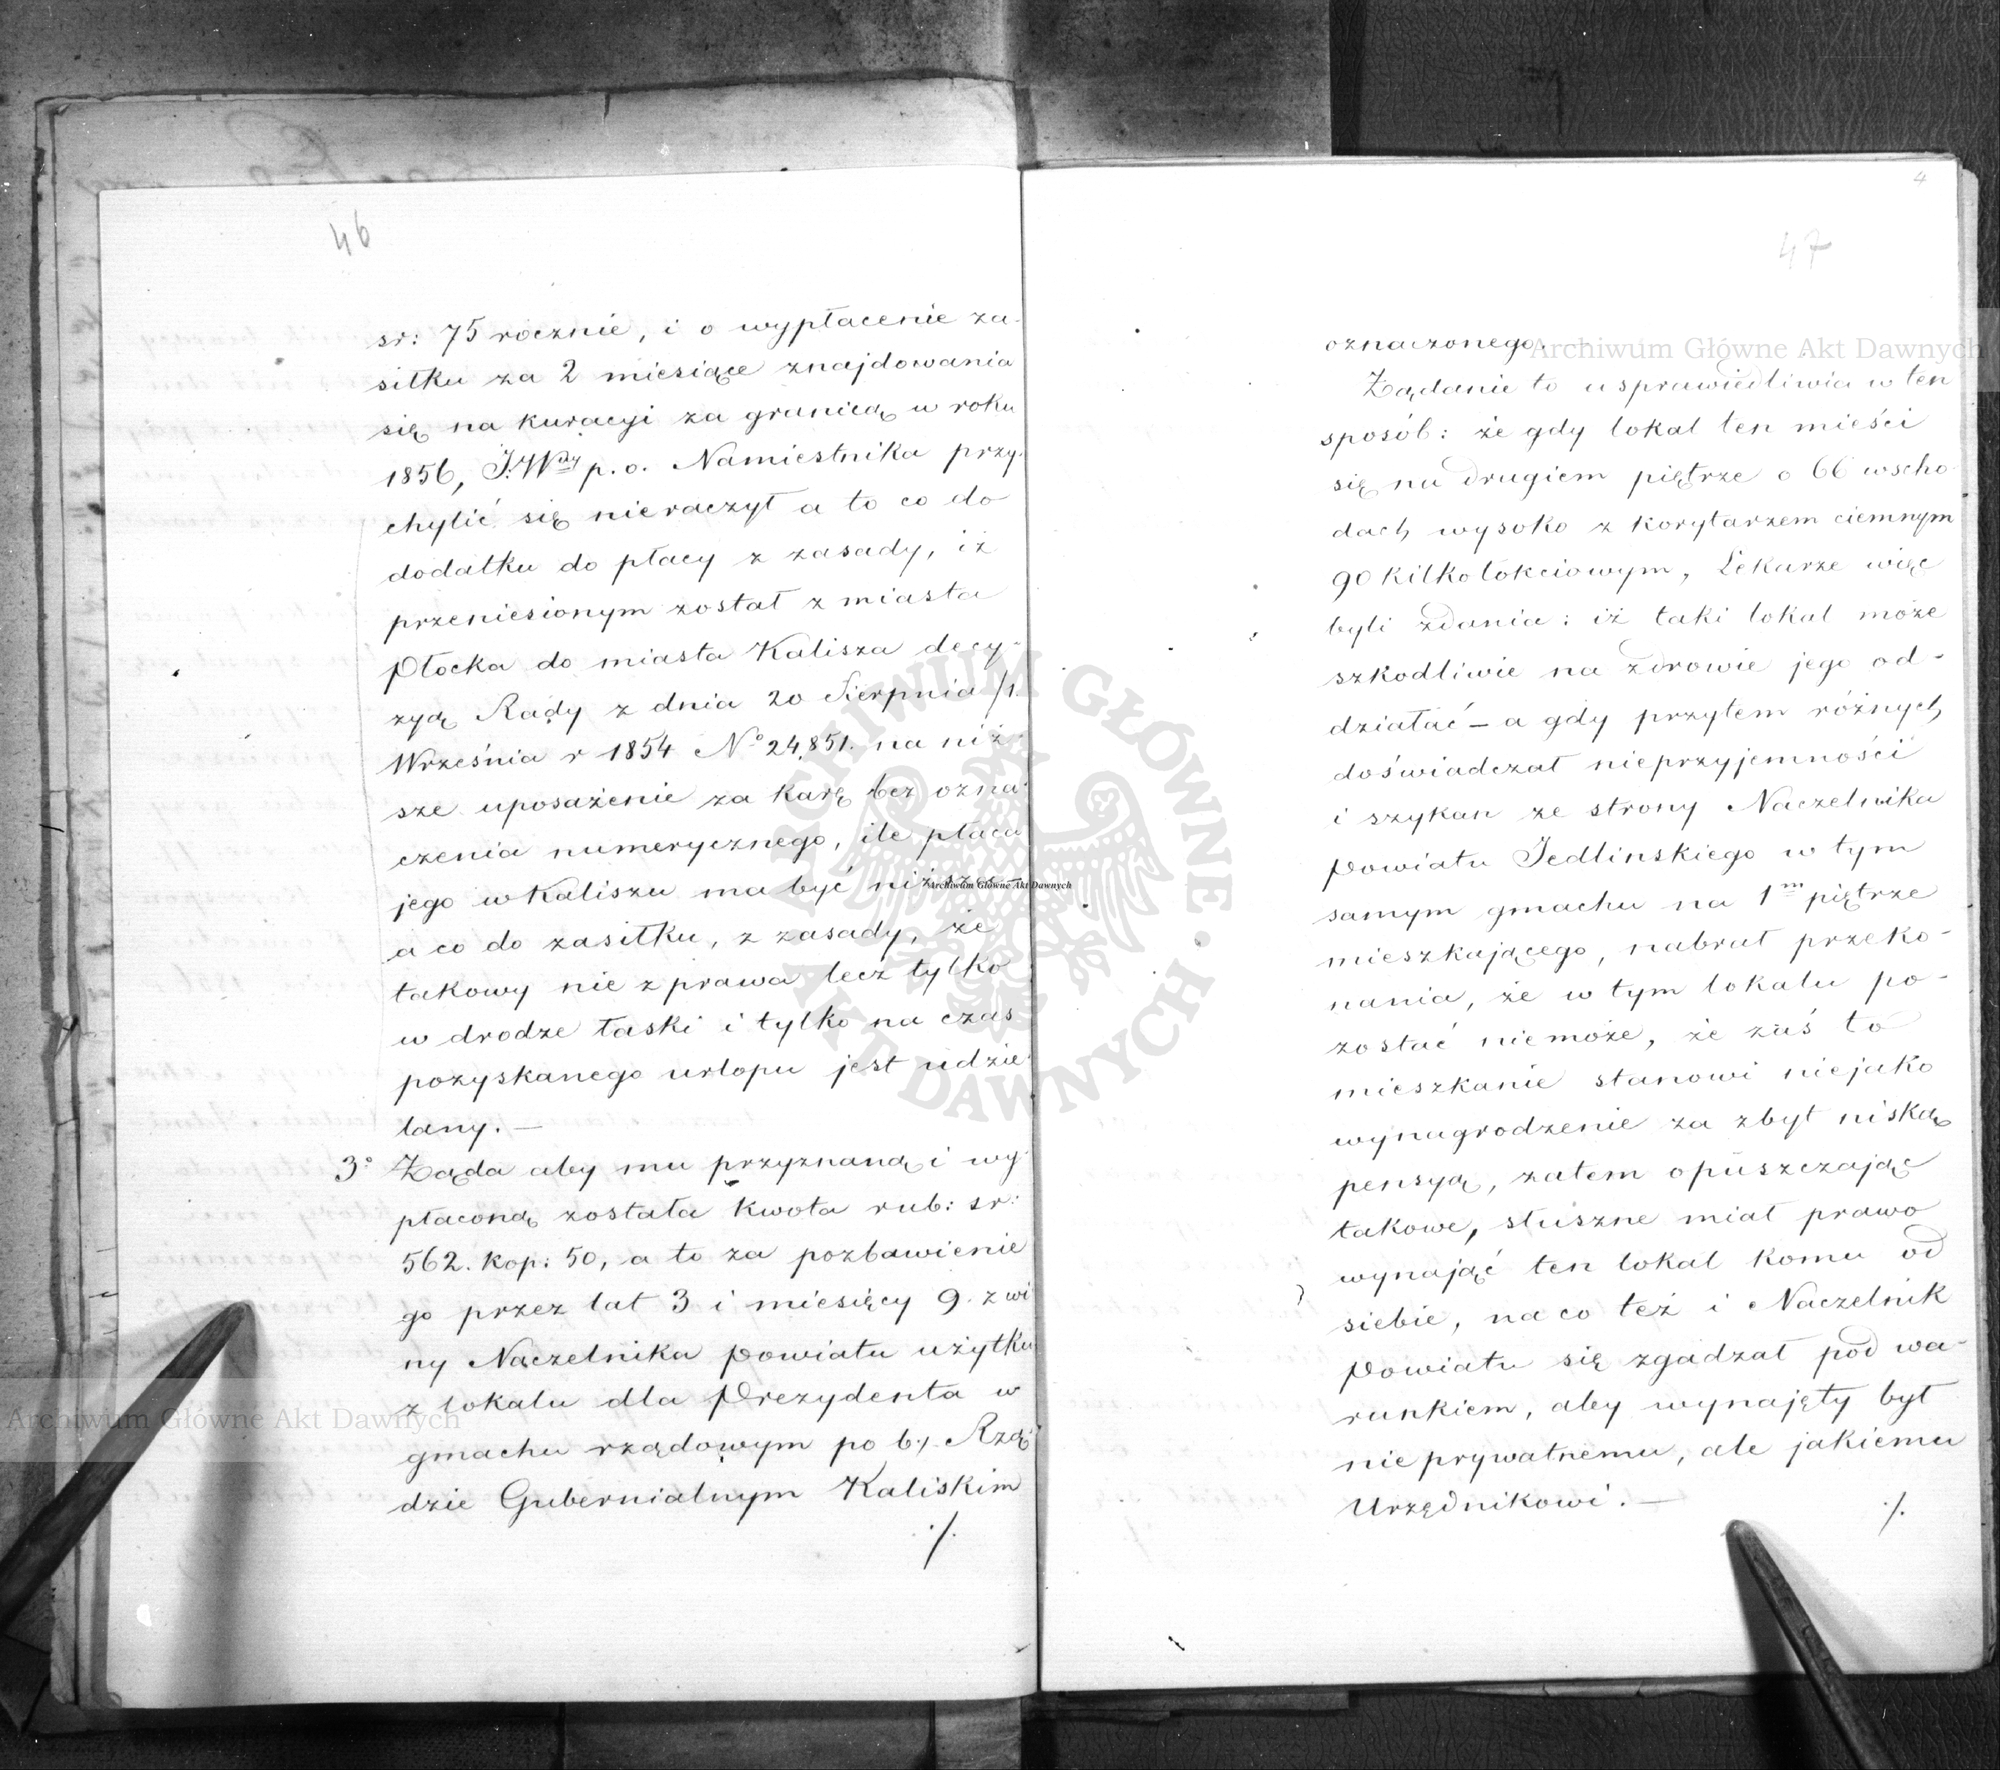 46
sr: 75 rocznie, i o wypłacenie za-
siłku za 2 miesiące znajdowania
się na kuracyi za granicą w roku
1856, J.W<sup>ny</sup> p. o. Namiestnika przy-
chylić się nieraczył a to co do
dodatku do płacy z zasady, iż
przeniesionym został z miasta
Płocka do miasta Kalisza decy-
zyą Rady z dnia 20 Sierpnia /1.
Września r 1854 N° 24,851. na niż-
sze uposażenie za karę bez ozna-
czenia numerycznego, ile płaca
jego w Kaliszu ma być niższa —
a co do zasiłku, z zasady, że
takowy nie z prawa lecz tylko
w drodze łaski i tylko na czas
pozyskanego urlopu jest udzie-
lany. —
3° Żąda aby mu przyznaną i wy-
płaconą została kwota rub: sr:
562. kop: 50, a to za pozbawienie
go przez lat 3 i miesięcy 9. z wi
ny Naczelnika Powiatu użytku
z lokalu dla Prezydenta w
gmachu rządowym po b:. Rzą-
dzie Gubernialnym Kaliskim
./.
4
47
oznaczonego. —
Żądanie to usprawiedliwia w ten
sposób: że gdy lokal ten mieści
się na drugiem piętrze o 66 wscho-
dach wysoko z korytarzem ciemnym
90 kilkołokciowym, Lekarze więc
byli zdania: iż taki lokal może
szkodliwie na zdrowie jego od-
działać — a gdy przytem różnych
doświadczał nieprzyjemności
i szykan ze strony Naczelnika
Powiatu Jedlinskiego w tym
samym gmachu na 1<sup>m</sup> piętrze
mieszkającego, nabrał przeko-
nania, że w tym lokalu po-
zostać niemoże, że zaś to
mieszkanie stanowi niejako
wynagrodzenie za zbyt niską
pensyą, zatem opuszczając
takowe, słuszne miał prawo
wynająć ten lokal komu od
siebie, na co też i Naczelnik
Powiatu się zgadzał pod wa-
runkiem, aby wynajęty był
nie prywatnemu, ale jakiemu
Urzędnikowi. —
./.
Archiwum Główne Akt Dawnych
Archiwum Główne Akt Dawnych
Archiwum Główne Akt Dawnych
ARCHIWUM GŁÓWNE • AKT DAWNYCH •